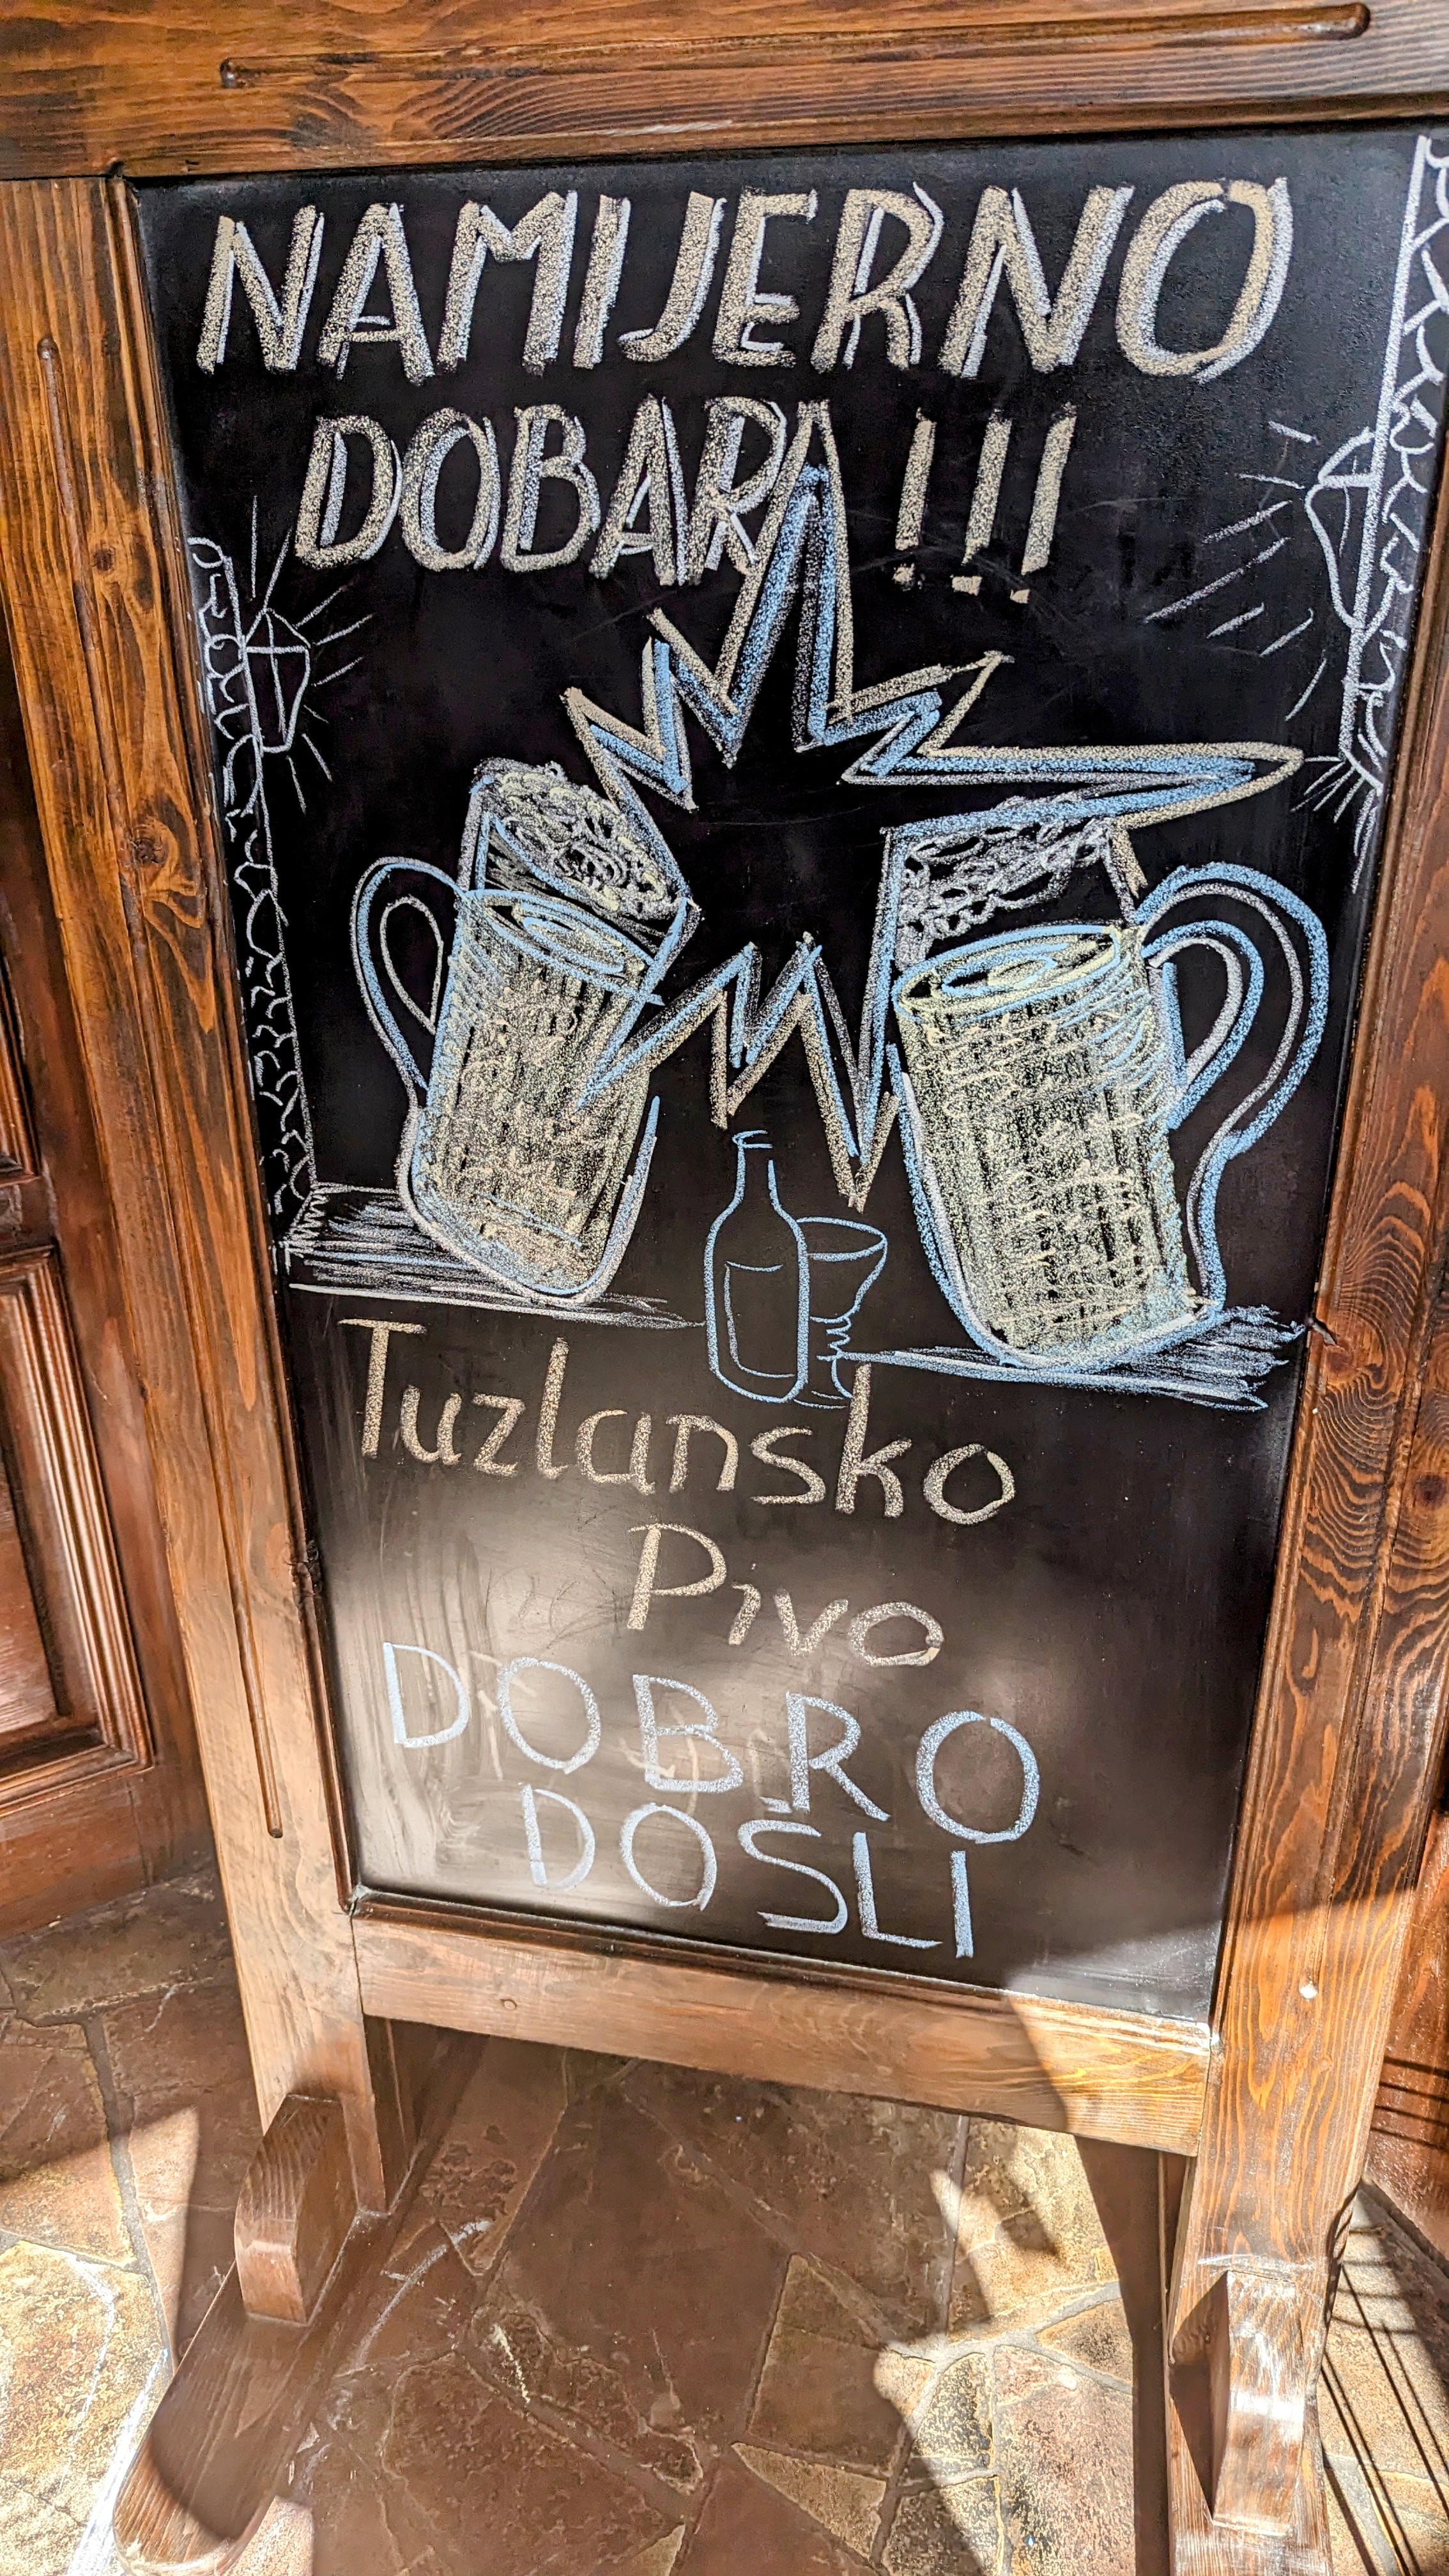 NAMIJERNO
DOBAR !!!
Tuzlansko
Pivo
DOBRO
DOŠLI